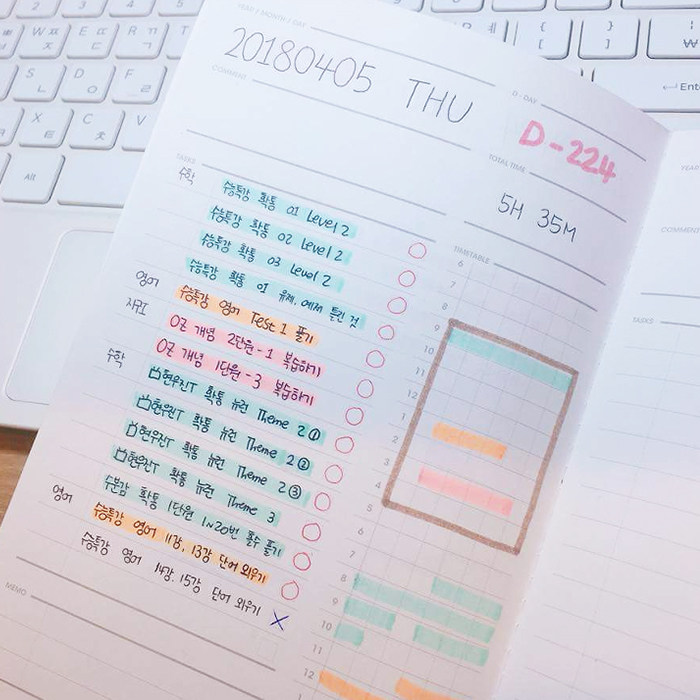 YEAR / MONTH / DAY
20180405 THU
D-DAY
D-224
COMMENT
TOTAL TIME
5H 35M
TASKS
TIMETABLE
수학 수능특강 확통 01 Level 2
수능특강 확통 02 Level 2
수능특강 확통 03 Level 2
수능특강 확통 01 유제, 예제 틀린 것
영어 수능특강 영어 Test 1 풀기
OZ 개념 2단원-1 복습하기
OZ 개념 1단원-3 복습하기
수학 현우진T 확통 뉴런 Theme 2 ①
현우진T 확통 뉴런 Theme 2 ②
현우진T 확통 뉴런 Theme 2 ③
현우진T 확통 뉴런 Theme 3
수분감 확통 1단원 1~20번 홀수 풀기
영어 수능특강 영어 11강, 13강 단어 외우기
수능특강 영어 14강, 15강 단어 외우기 X
MEMO
6
7
8
9
10
11
12
1
2
3
4
5
6
7
8
9
10
11
12
YEAR
COMMENT
TASKS
W
E
R
S
D
F
X
C
V
Alt
Ente